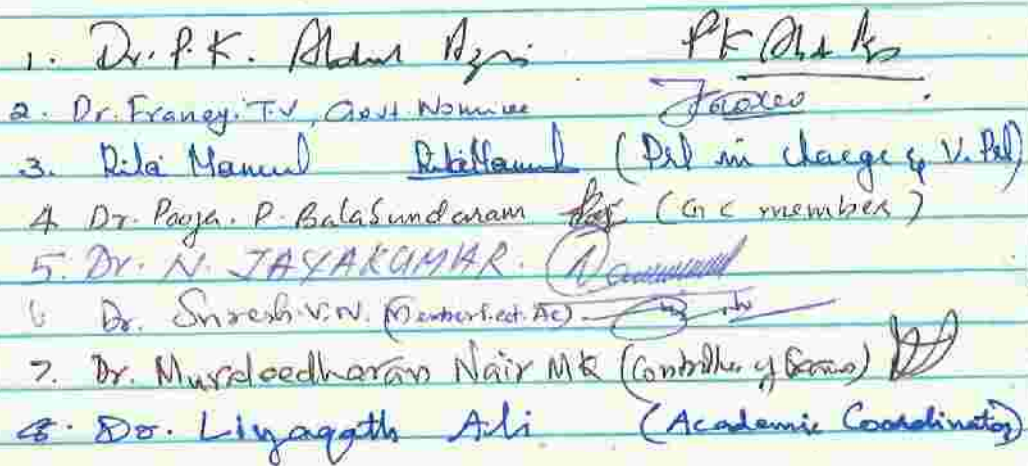 1. Dr. P. K. Abdul Azis
2. Dr. Franey. T.V, Govt. Nominee
3. Rita Manuel (Prl in charge & V. Prl)
4 Dr. Pooja. P. Balasundaram (GC member)
5. Dr. N. JAYAKUMAR.
6 Dr. Suresh V.N.
7. Dr. Muraleedharan Nair MK (Controller of Exams)
8. Dr. Liyaqgath Ali (Academic Coordinator)